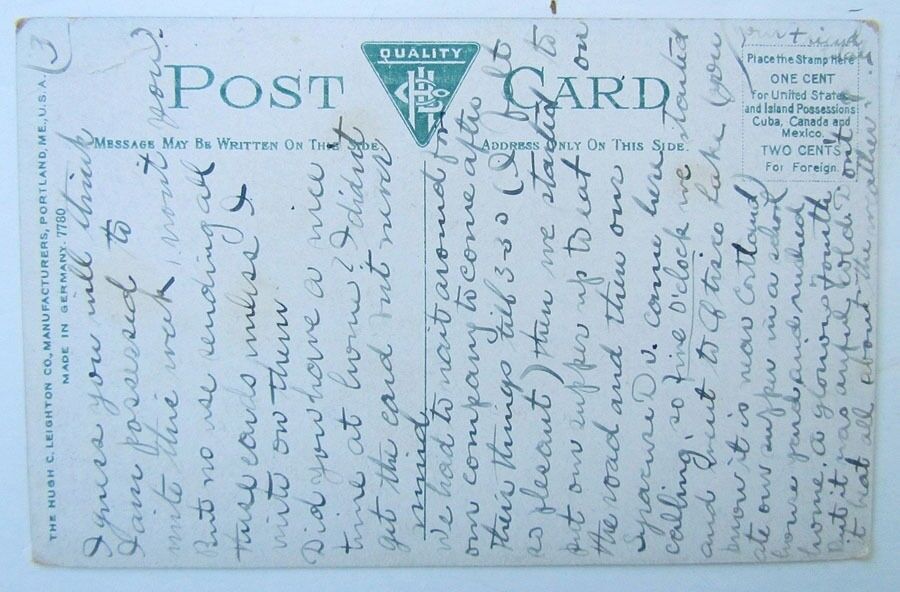 3
POST CARD
QUALITY
MESSAGE MAY BE WRITTEN ON THIS SIDE.
ADDRESS ONLY ON THIS SIDE.
Place the Stamp Here
ONE CENT
for United States
and Island Possessions
Cuba, Canada and
Mexico.
TWO CENTS
For Foreign.
THE HUGH C. LEIGHTON CO., MANUFACTURERS, PORTLAND, ME., U.S.A.
MADE IN GERMANY. 7780
I guess you will think
I am possessed to
write this week, wont you.
But no use sending all
these cards unless I
write on them.
Did you have a nice
time at home? I didn't
get the card but never
mind.
We had to wait around for
our company to come after
their things till 3:30 (I felt
so pleasant) then we started to
put our supper up to eat on
the road and then our
came here
calling so five o'clock we started
and went to Lake (you
know it is near Cortland)
ate our supper in a school
house yard and reached
home. a glorious fourth
but it was awful cold. I
it heat all about the weather.
your friend